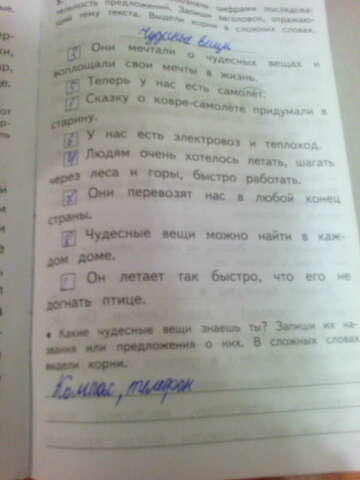 цифрами последова-
тельность предложений. Запиши заголовок, отражаю-
щий тему текста. Выдели корни в сложных словах.
Чудесные вещи
Они мечтали о чудесных вещах и
воплощали свои мечты в жизнь.
5 Теперь у нас есть самолёт.
1 Сказку о ковре-самолёте придумали в
старину.
У нас есть электровоз и теплоход.
4 Людям очень хотелось летать, шагать
через леса и горы, быстро работать.
Они перевозят нас в любой конец
страны.
Чудесные вещи можно найти в каж-
дом доме.
Он летает так быстро, что его не
догнать птице.
• Какие чудесные вещи знаешь ты? Запиши их на-
звания или предложения о них. В сложных словах
выдели корни.
Компас, телефон